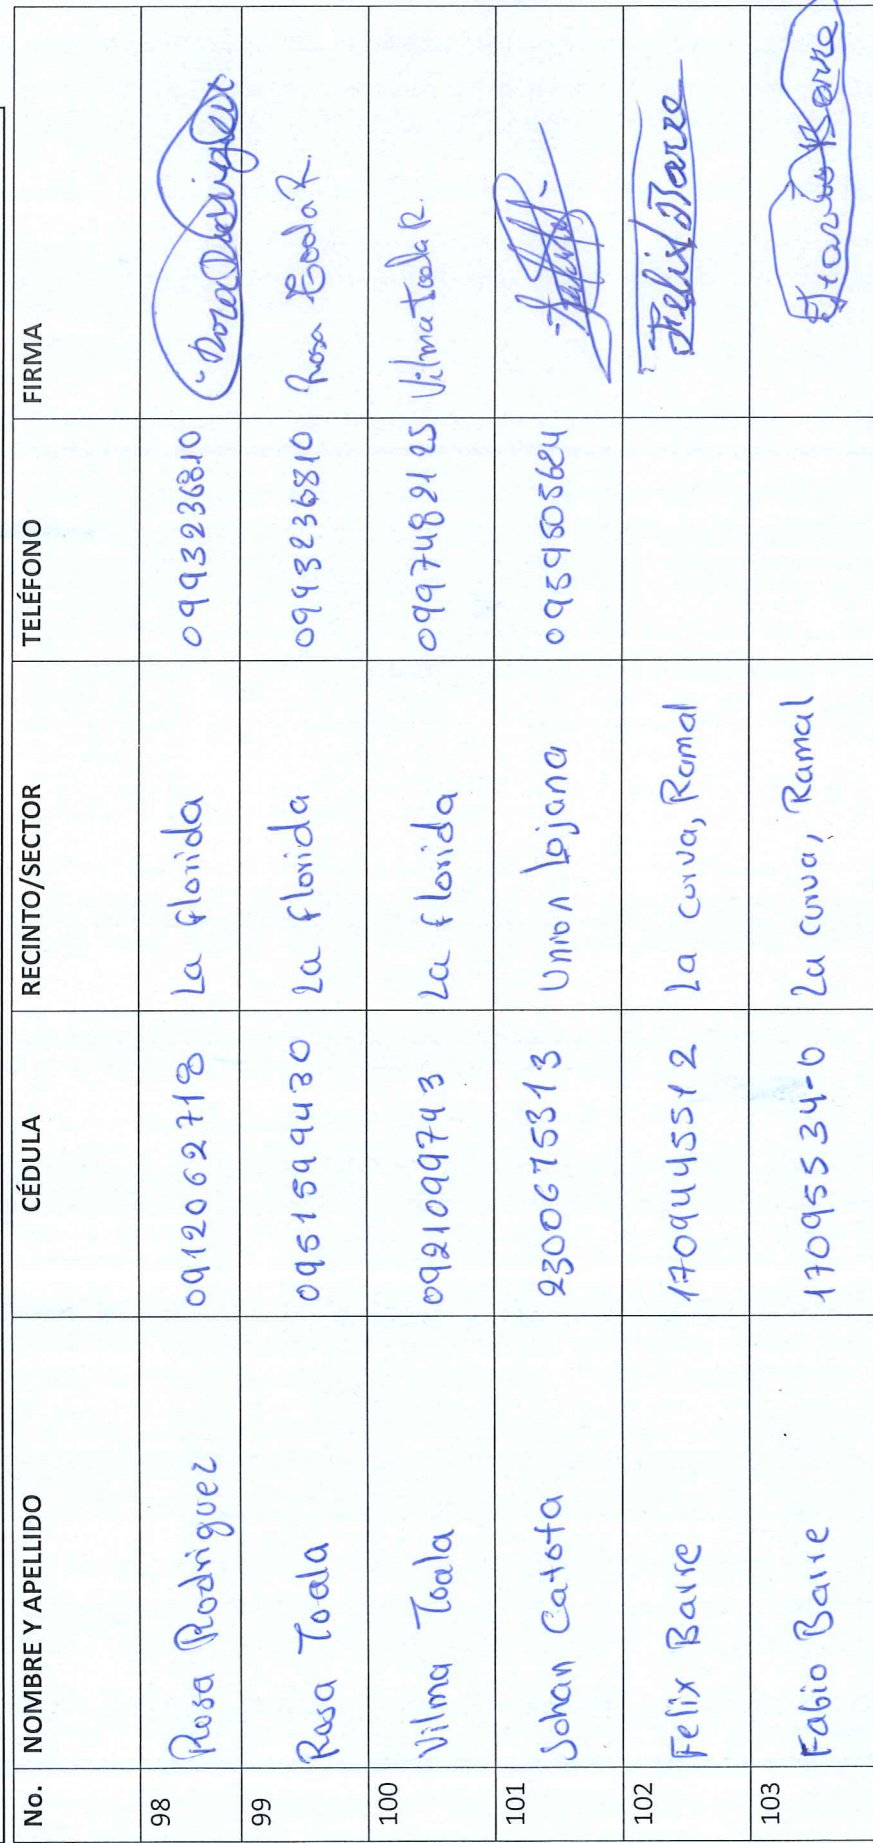 No. NOMBRE Y APELLIDO CÉDULA RECINTO/SECTOR TELÉFONO FIRMA
98 Rosa Rodriguez 0912062718 La Florida 0993236810 Rosa Rodriguez
99 Rosa Toala 0951599430 La Florida 0993236810 Rosa Toala R.
100 Vilma Toala 0921099743 La Florida 0997482125 Vilma Toala R.
101 Johan Catota 2300675313 Union Lojana 0959505624
102 Felix Barre 1709445512 La Curva, Ramal Felix Barre
103 Fabio Barre 17095534-0 La Curva, Ramal Barre